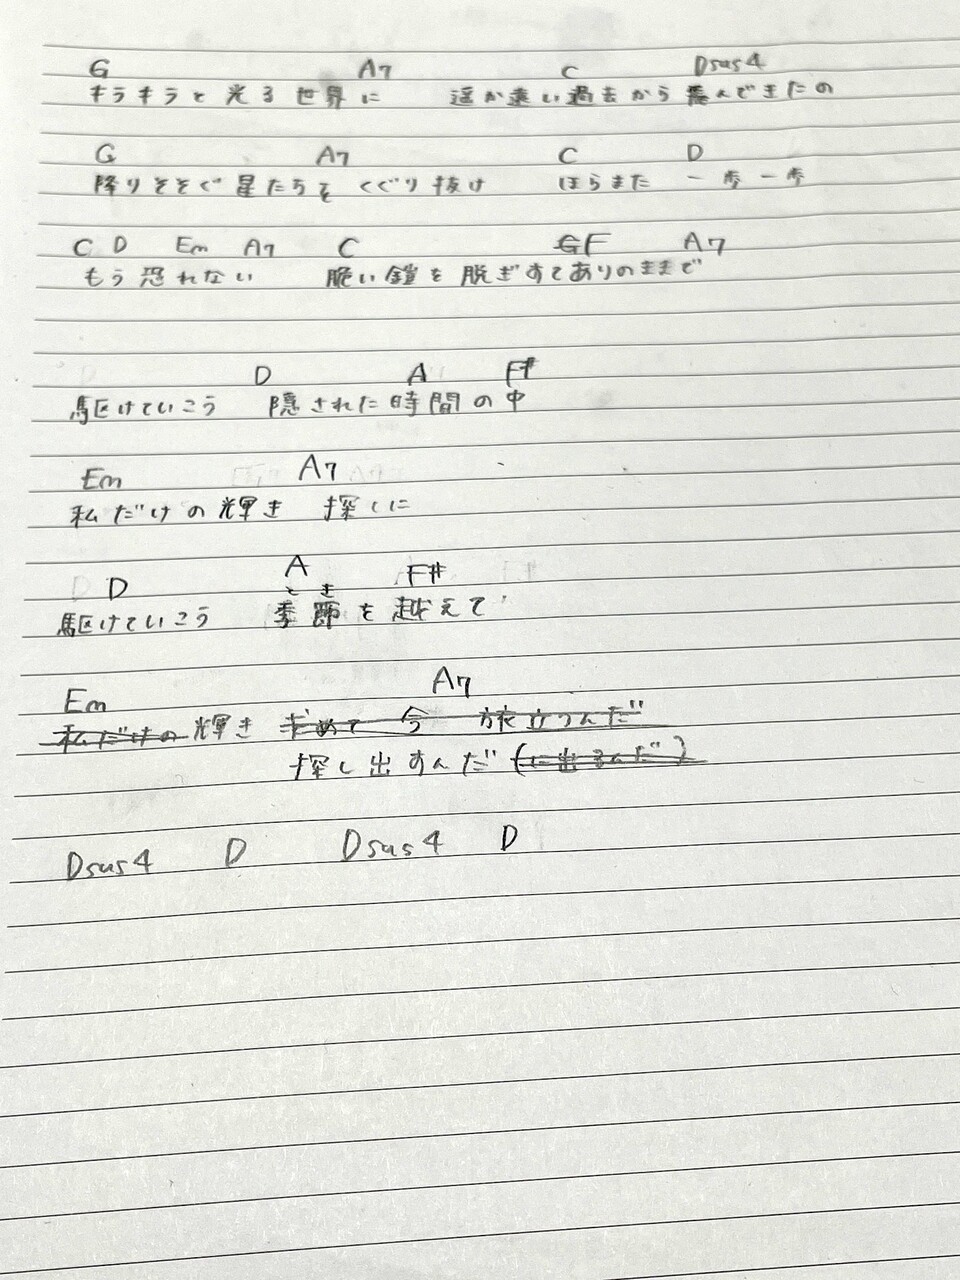 G A7 C Dsus4
キラキラと光る世界に 遥か遠い過去から飛んできたの
G A7 C D
降りそそぐ星たちを くぐり抜け ほらまた 一歩一歩
C D Em A7 C G F A7
もう恐れない 脆い鎧を脱ぎすてありのままで
D A F#
駆けていこう 隠された時間の中
Em A7
私だけの輝き 探しに
D A F#
とき
駆けていこう 季節を越えて
Em A7
私だけの輝き 求めて 今 旅立つんだ
探し出すんだ (に出るんだ)
Dsus4 D Dsus4 D